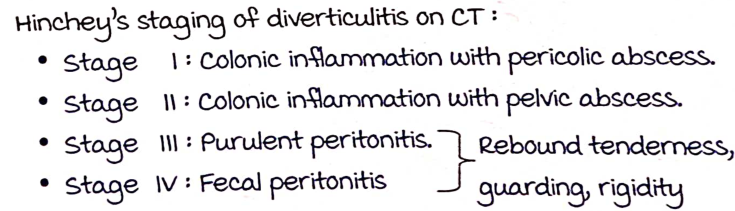 Hinchey's staging of diverticulitis on CT :
• Stage I : Colonic inflammation with pericolic abscess.
• Stage II : Colonic inflammation with pelvic abscess.
• Stage III : Purulent peritonitis.
• Stage IV : Fecal peritonitis
Rebound tenderness,
guarding, rigidity